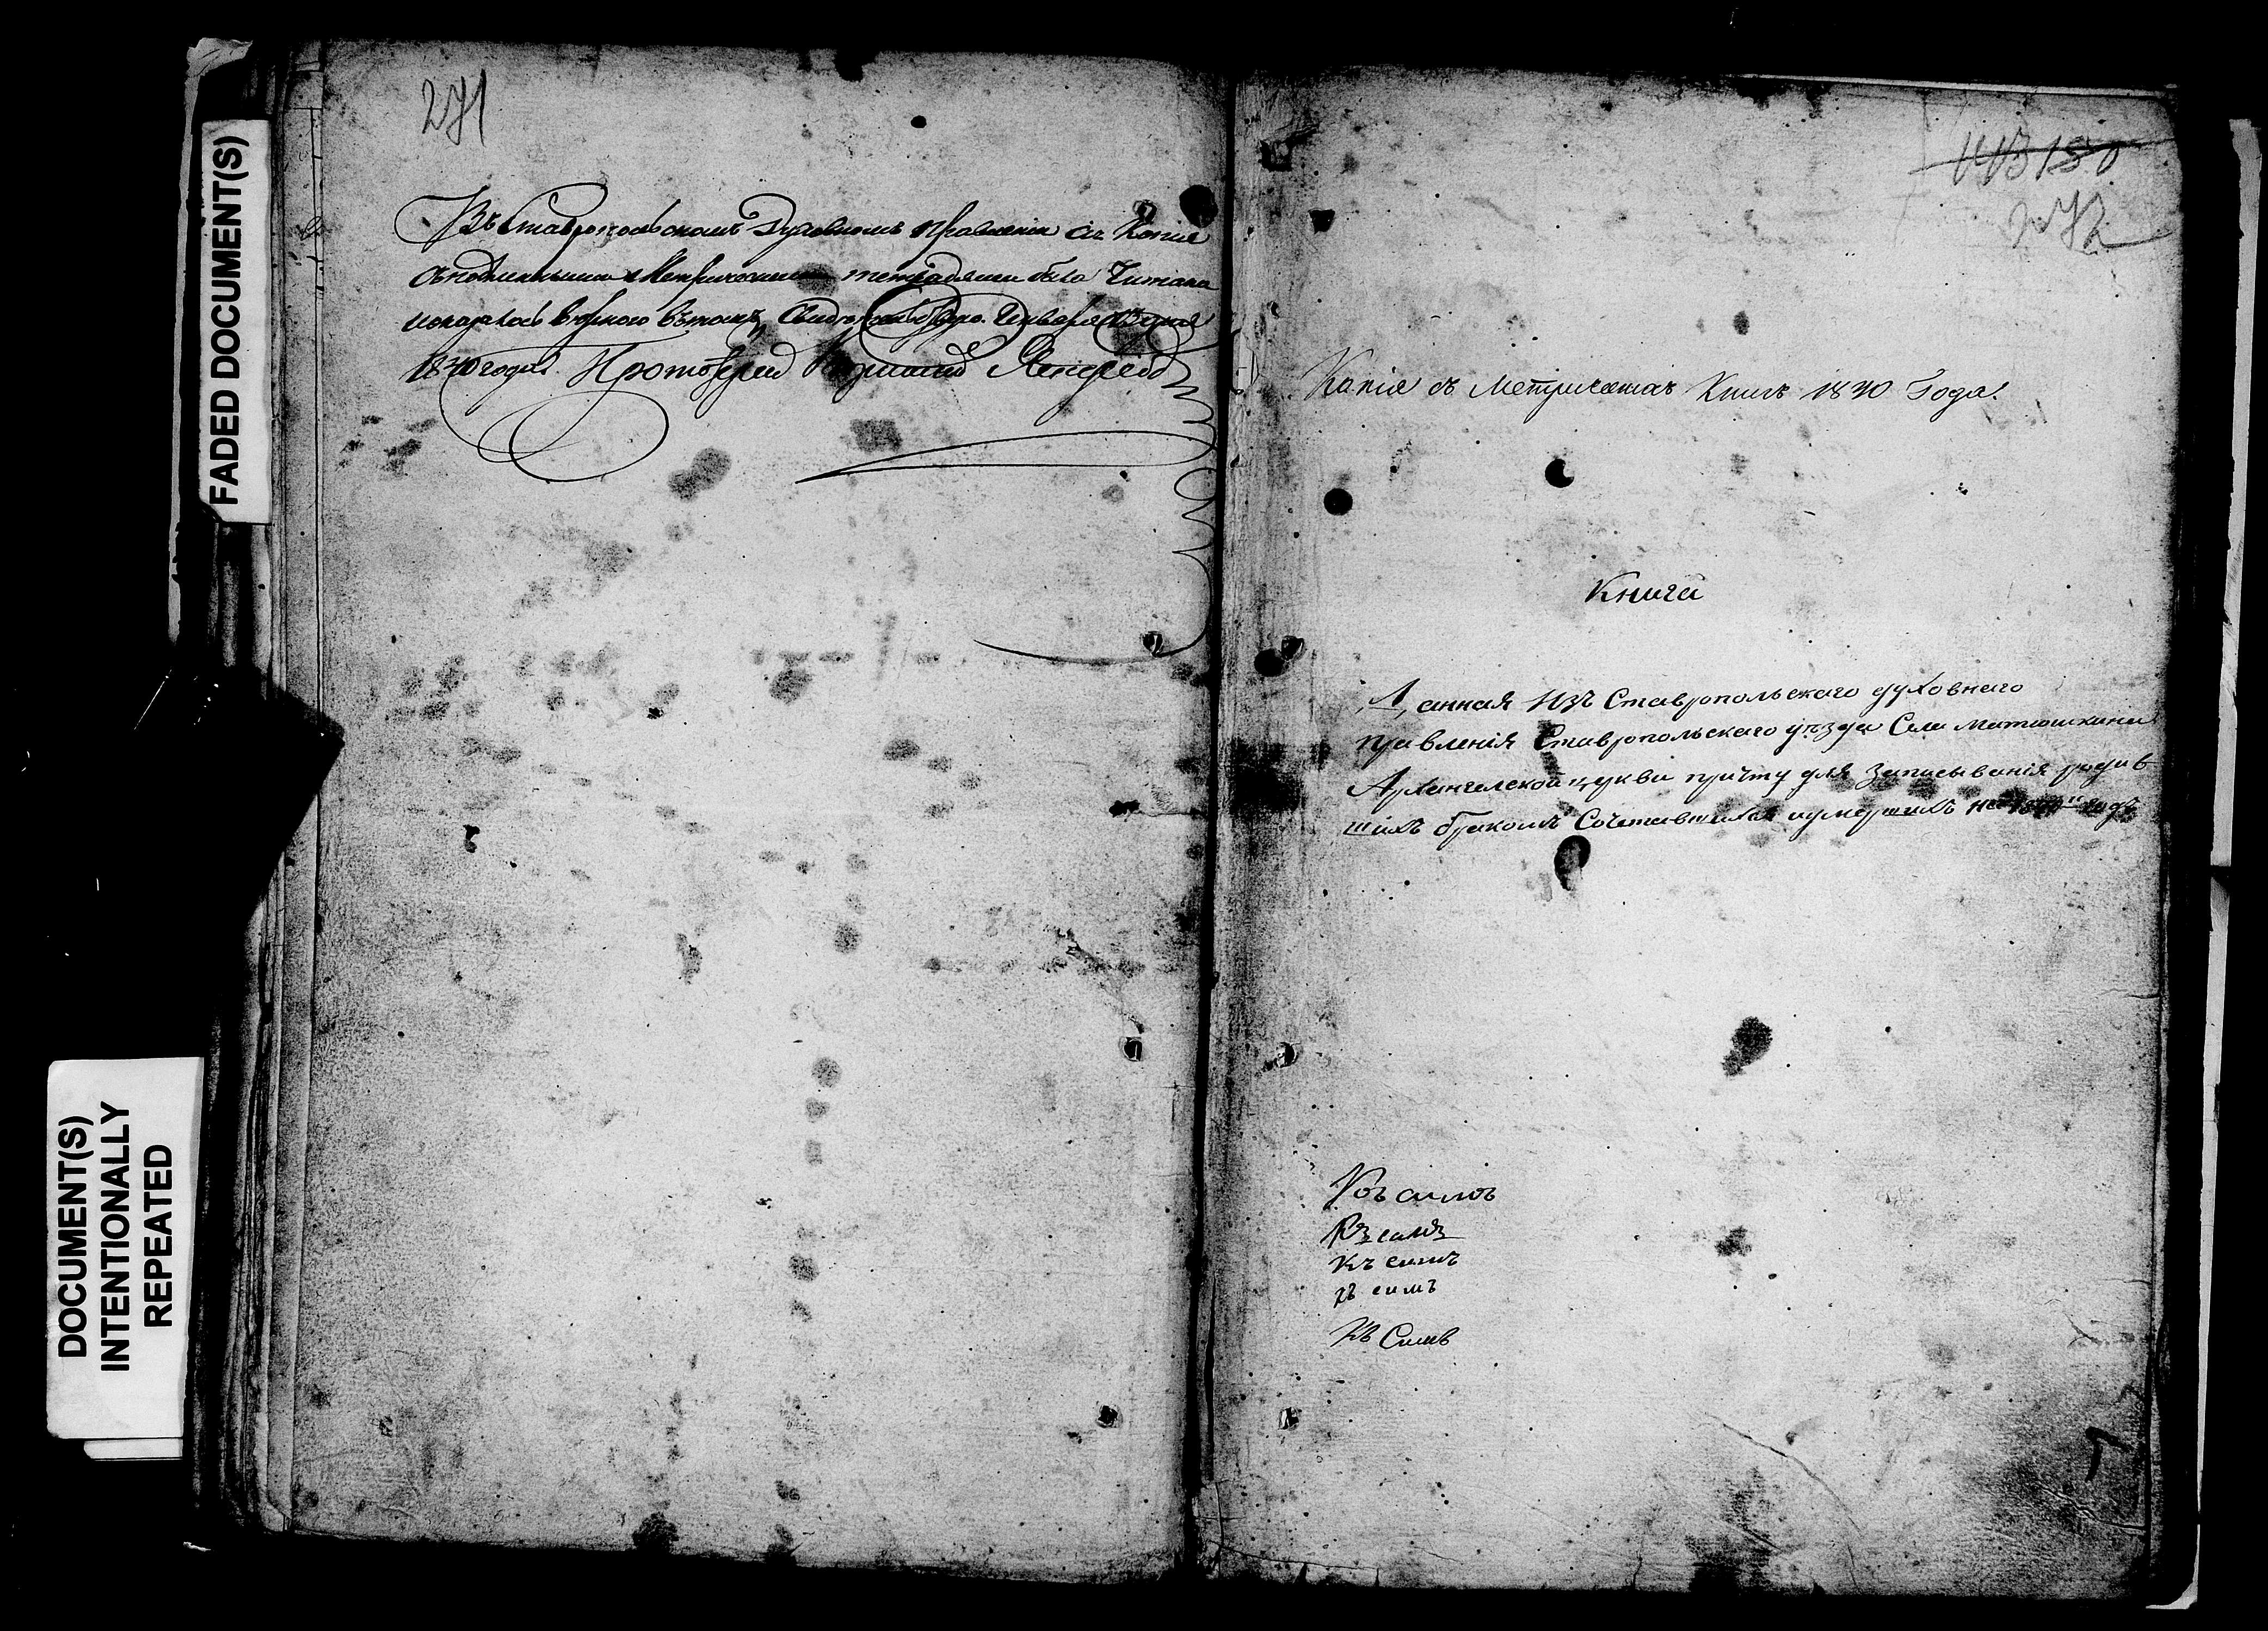 FADED DOCUMENT(S)
DOCUMENT(S)
INTENTIONALLY
REPEATED
271
Въ Ставропольскомъ Духовномъ Правленіи сія Копія
съ подлинными Метрическими тетрадями была Читана
1840 года. Протоіерей
272
Копія съ Метрическихъ Книгъ 1840 Года.
Книга
Данная изъ Ставропольскаго духовнаго
правленія Ставропольскаго уѣзда Села Матюшкина
Архангелской церкви причту для записыванія родив
шихъ бракомъ Сочетавшихся и умершихъ на 1840й годъ
Къ симъ
Къ симъ
Къ симъ
къ симъ
Къ Симъ